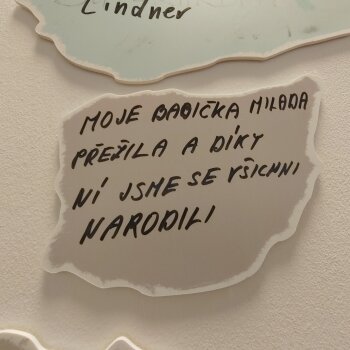 Lindner
MOJE BABIČKA MILADA
PŘEŽILA A DÍKY
NÍ JSME SE VŠICHNI
NARODILI